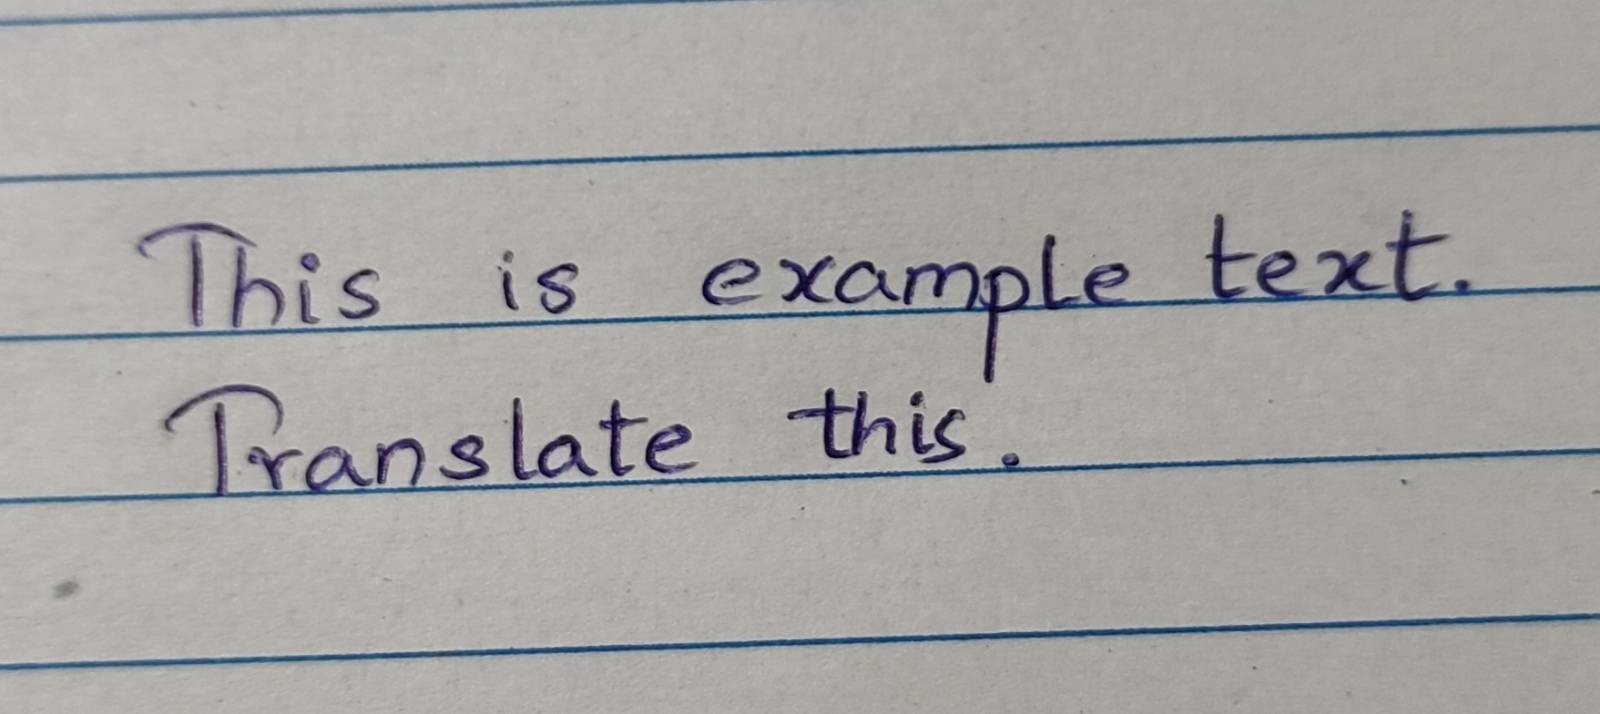 This is example text.
Translate this.